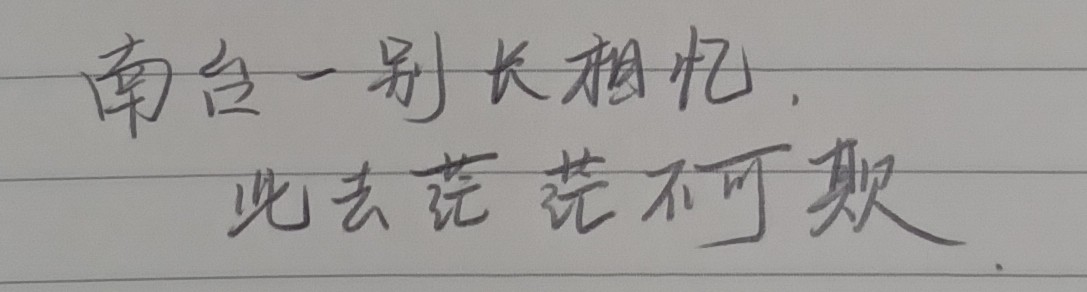 南台一别长相忆.
此去茫茫不可欺.